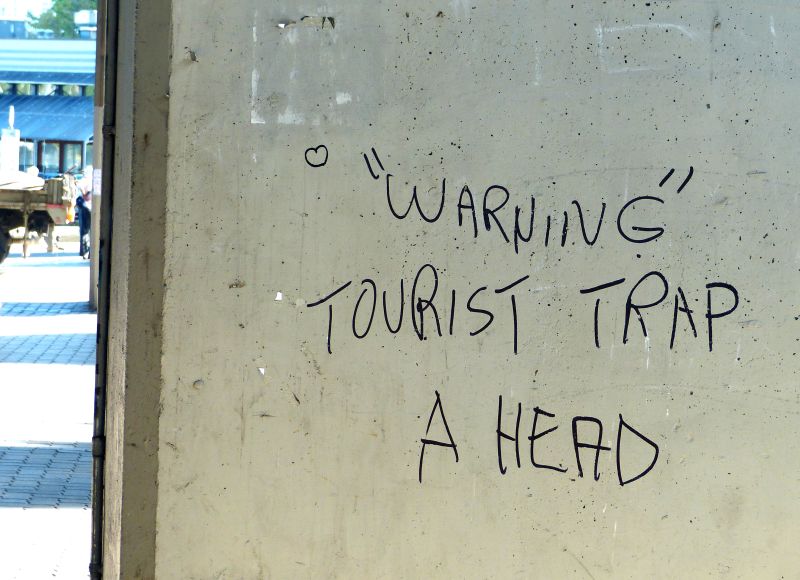 "WARNING"
TOURIST TRAP
A HEAD